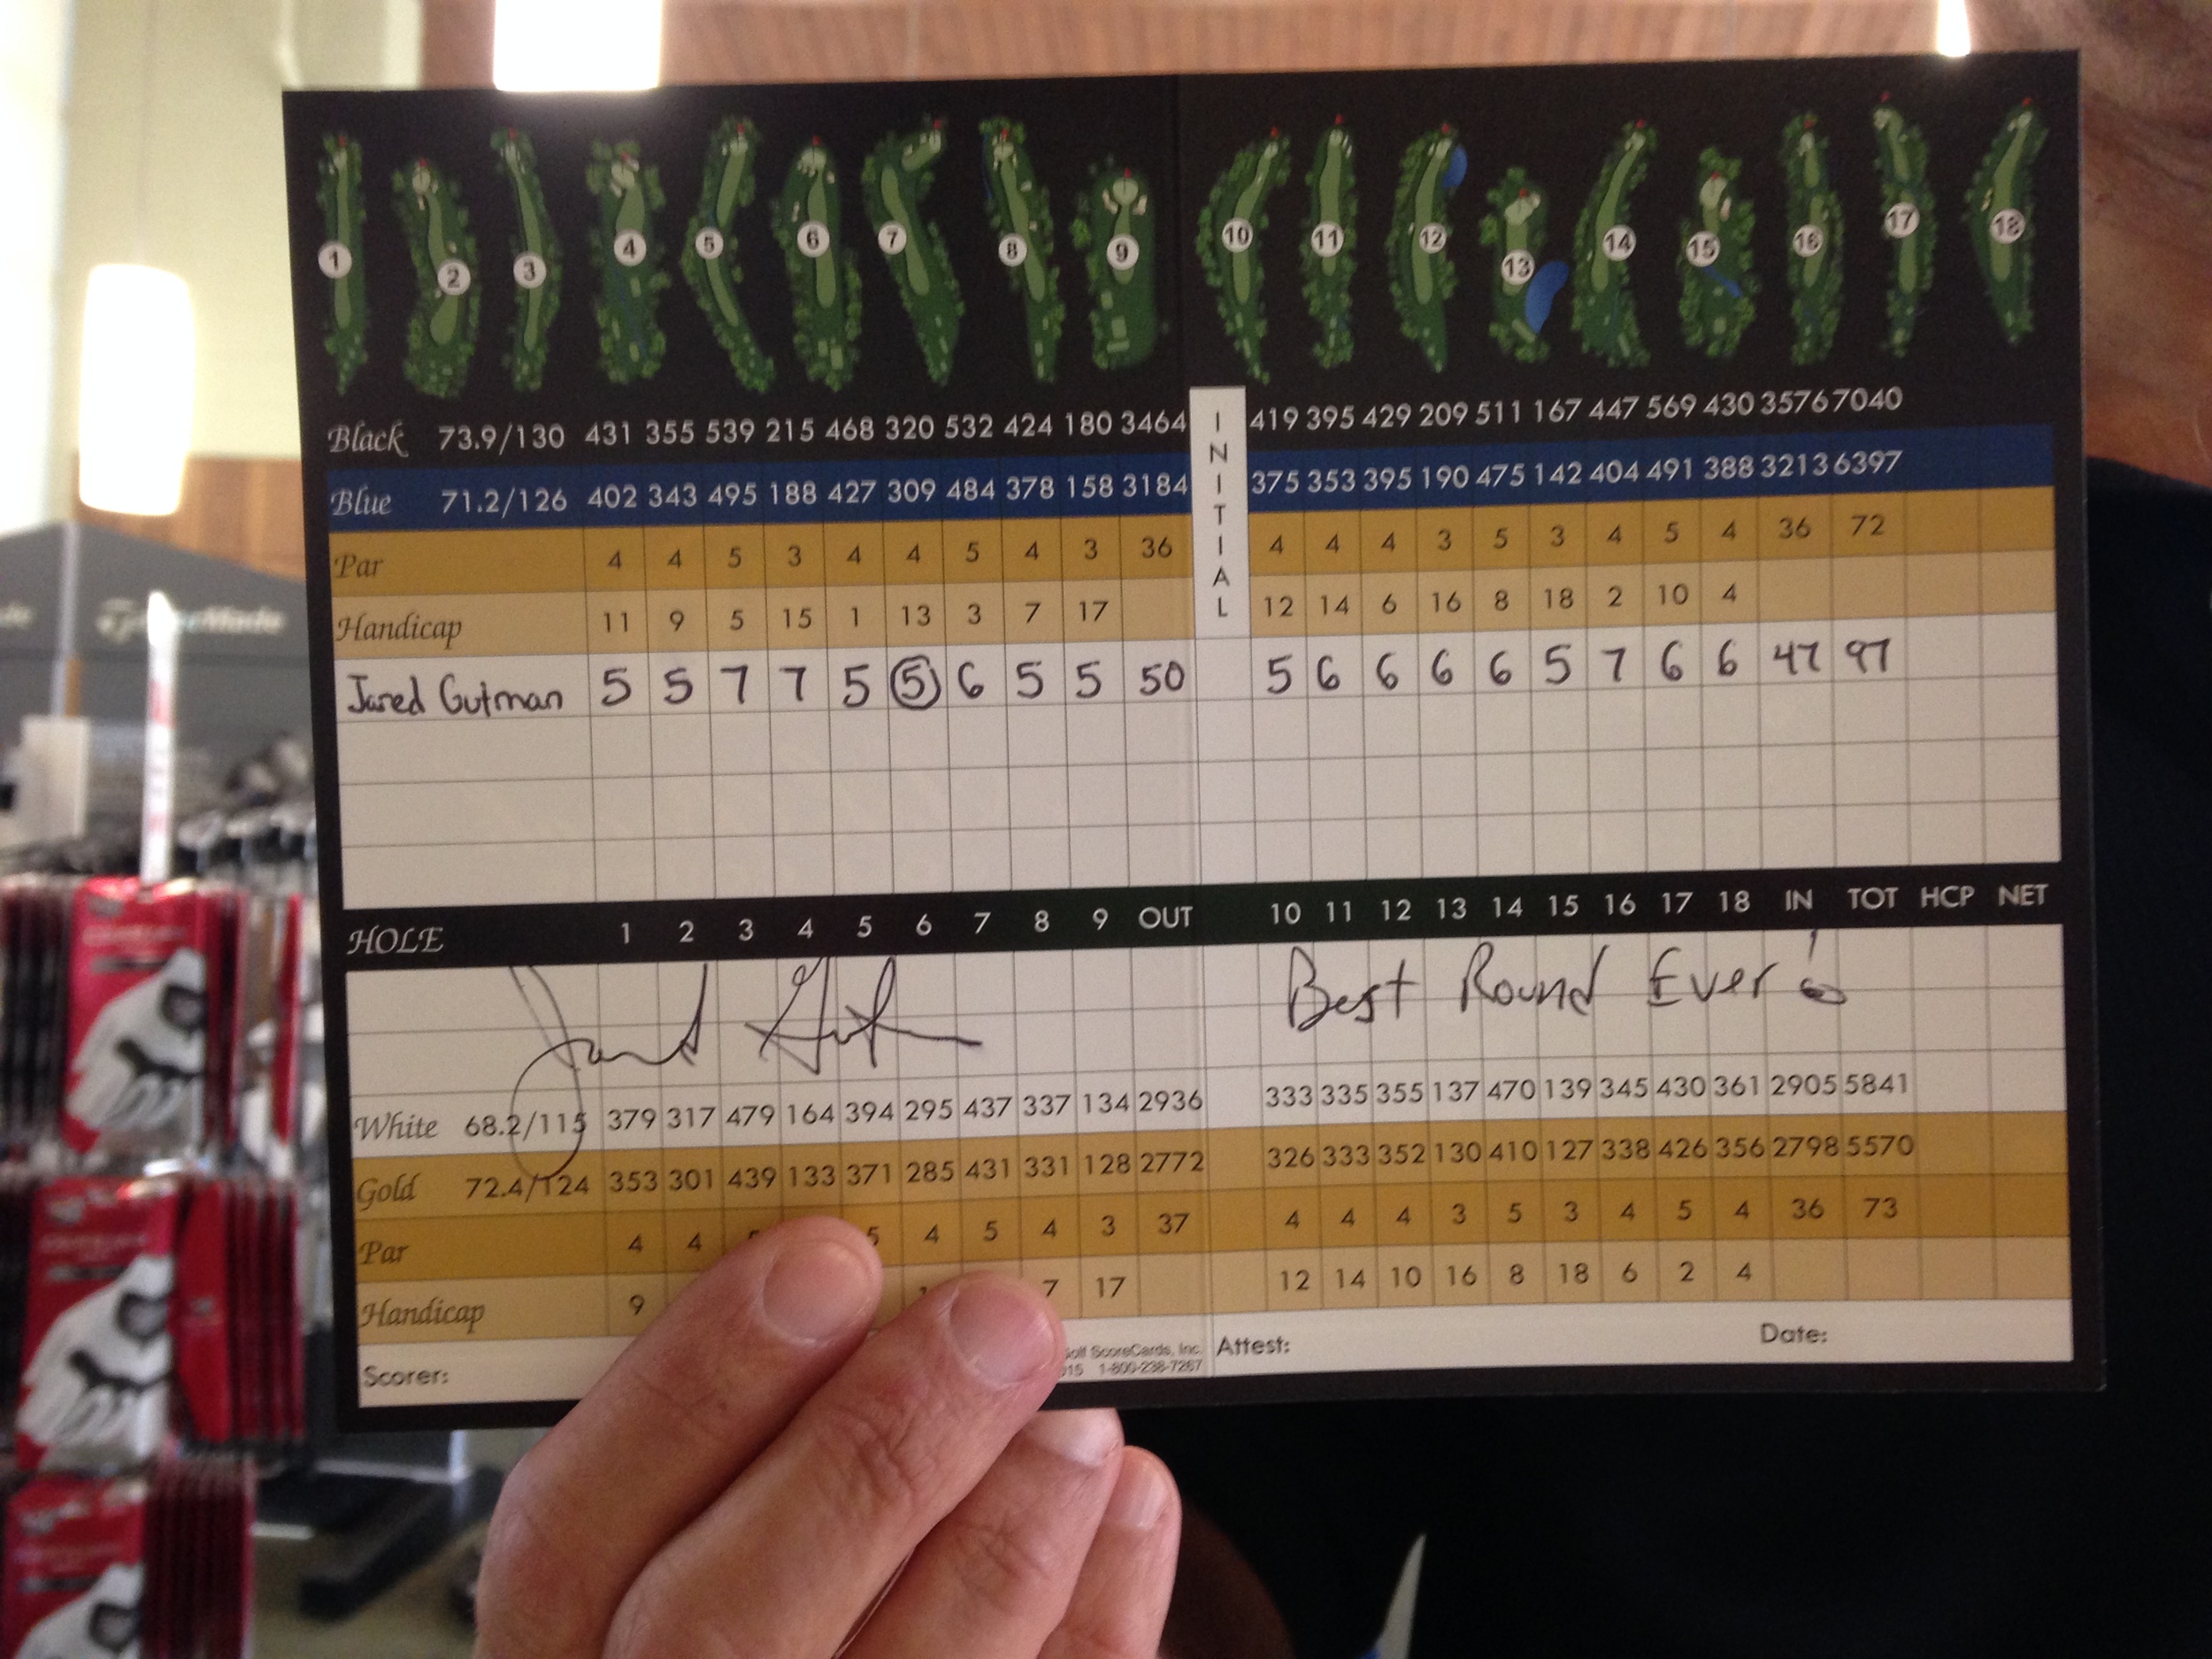 1 2 3 4 5 6 7 8 9 10 11 12 13 14 15 16 17 18
Black 73.9/130 431 355 539 215 468 320 532 424 180 3464 INITIAL 419 395 429 209 511 167 447 569 430 3576 7040
Blue 71.2/126 402 343 495 188 427 309 484 378 158 3184 375 353 395 190 475 142 404 491 388 3213 6397
Par 4 4 5 3 4 4 5 4 3 36 4 4 4 3 5 3 4 5 4 36 72
Handicap 11 9 5 15 1 13 3 7 17 12 14 6 16 8 18 2 10 4
Jared Gutman 5 5 7 7 5 5 6 5 5 50 5 6 6 6 6 5 7 6 6 47 97
HOLE 1 2 3 4 5 6 7 8 9 OUT 10 11 12 13 14 15 16 17 18 IN TOT HCP NET
Best Round Ever!
White 68.2/115 379 317 479 164 394 295 437 337 134 2936 333 335 355 137 470 139 345 430 361 2905 5841
Gold 72.4/124 353 301 439 133 371 285 431 331 128 2772 326 333 352 130 410 127 338 426 356 2798 5570
Par 4 4 5 4 5 4 3 37 4 4 4 3 5 3 4 5 4 36 73
Handicap 9 7 17 12 14 10 16 8 18 6 2 4
Scorer: Golf ScoreCards, Inc. Attest: Date:
1-800-238-7267